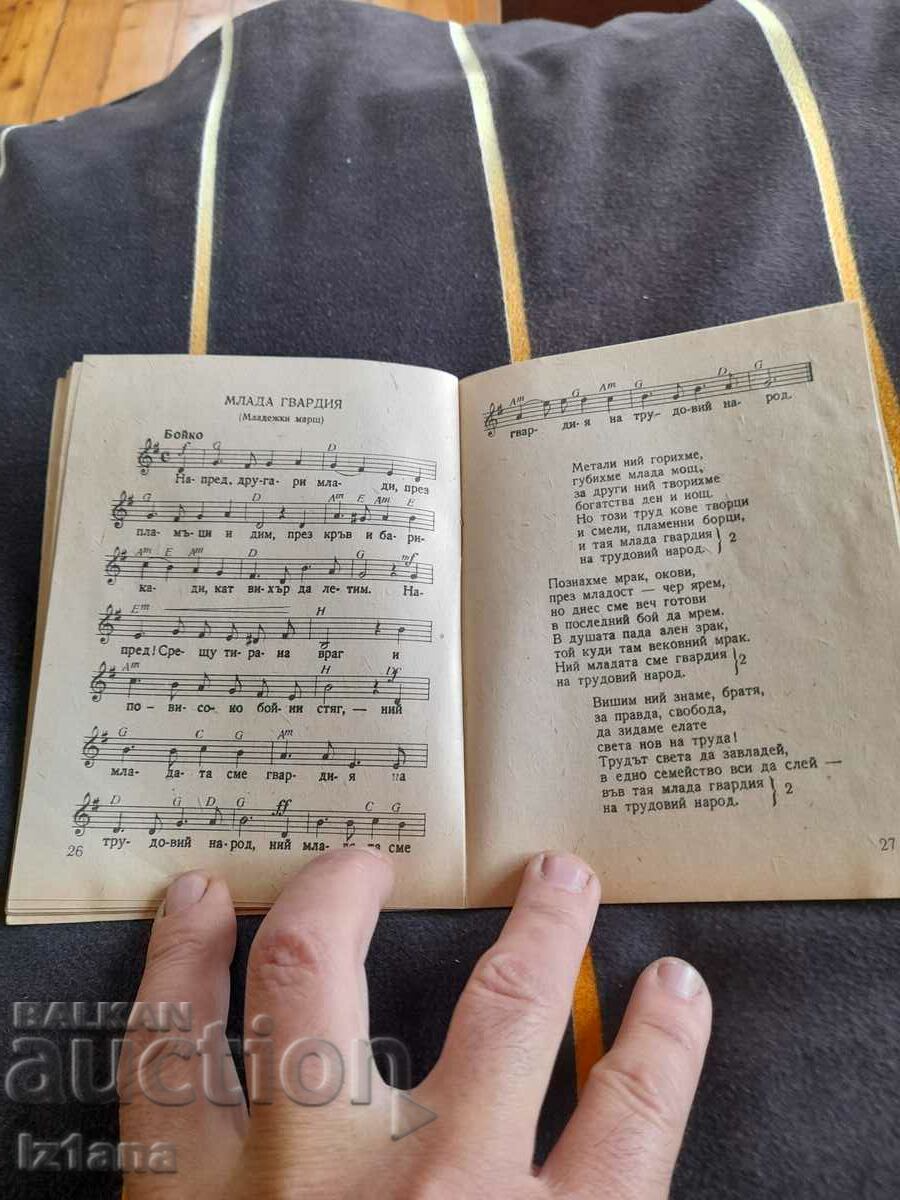 МЛАДА ГВАРДИЯ
(Младежки марш)
Бойко
f G D
На- пред, дру- га- ри мла- ди, през
G D Am E Am E
пла- мъ- ци и дим, през кръв и ба- ри-
Am E Am D G mf
ка- ди, кат ви- хър да ле- тим. На-
Em H
пред! Сре- щу ти- ра- на враг и
Am H
по- ви- со- ко бой- ни стяг, — ний
G C G Am
мла- да- та сме гвар- ди- я на
D G D G ff C G
тру- до- вий на- род, ний мла- сме
26
Am G Am G D G
гвар- ди- я на тру- до- вий на- род.
Метали ний горихме,
губихме млада мощ,
за други ний творихме
богатства ден и нощ.
Но този труд кове творци
и смели, пламенни борци,
и тая млада гвардия
на трудовий народ. } 2
Познахме мрак, окови,
през младост — чер ярем,
но днес сме веч готови
в последний бой да мрем.
В душата пада ален зрак,
той куди там вековний мрак.
Ний младата сме гвардия
на трудовий народ. } 2
Вишим ний знаме, братя,
за правда, свобода,
да зидаме елате
света нов на труда!
Трудът света да завладей,
в едно семейство вси да слей —
във тая млада гвардия
на трудовий народ. } 2
27
BALKAN
auction
Iz1ana